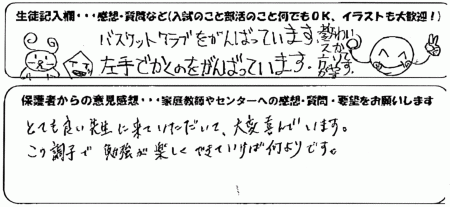 生徒記入欄・・・感想・質問など(入試のこと部活のこと何でもOK、イラストも大歓迎!)
バスケットクラブをがんばっています。
左手でかくのをがんばっています。
保護者からの意見感想・・・家庭教師やセンターへの感想・質問・要望をお願いします
とても良い先生に来ていただいて、大変喜んでいます。
この調子で勉強が楽しくできていけば何よりです。